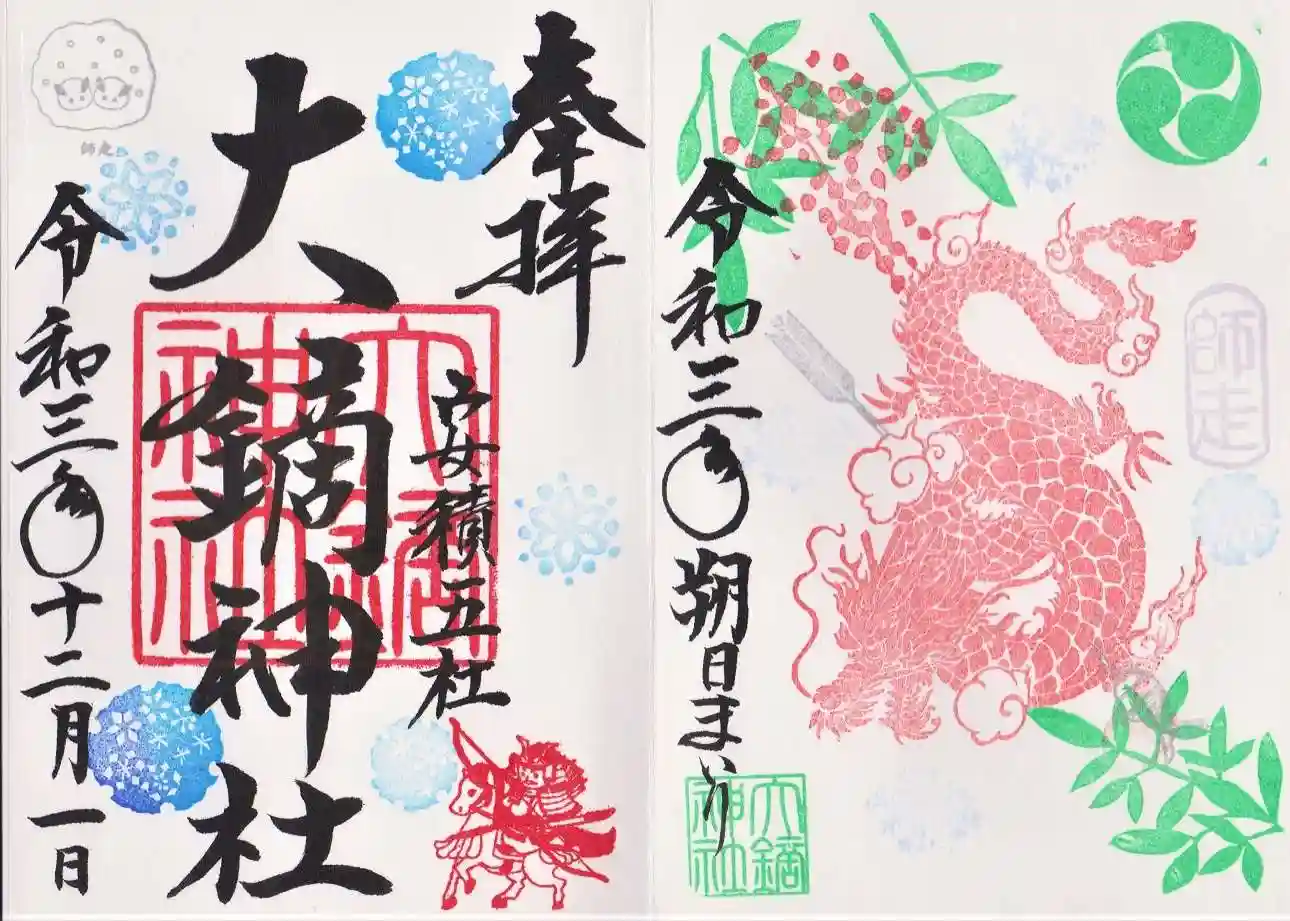 師走
令和三年朔日まいり
大鏑神社
奉拝
安積五社
大鏑神社
大鏑神社
師走
令和三年十二月一日